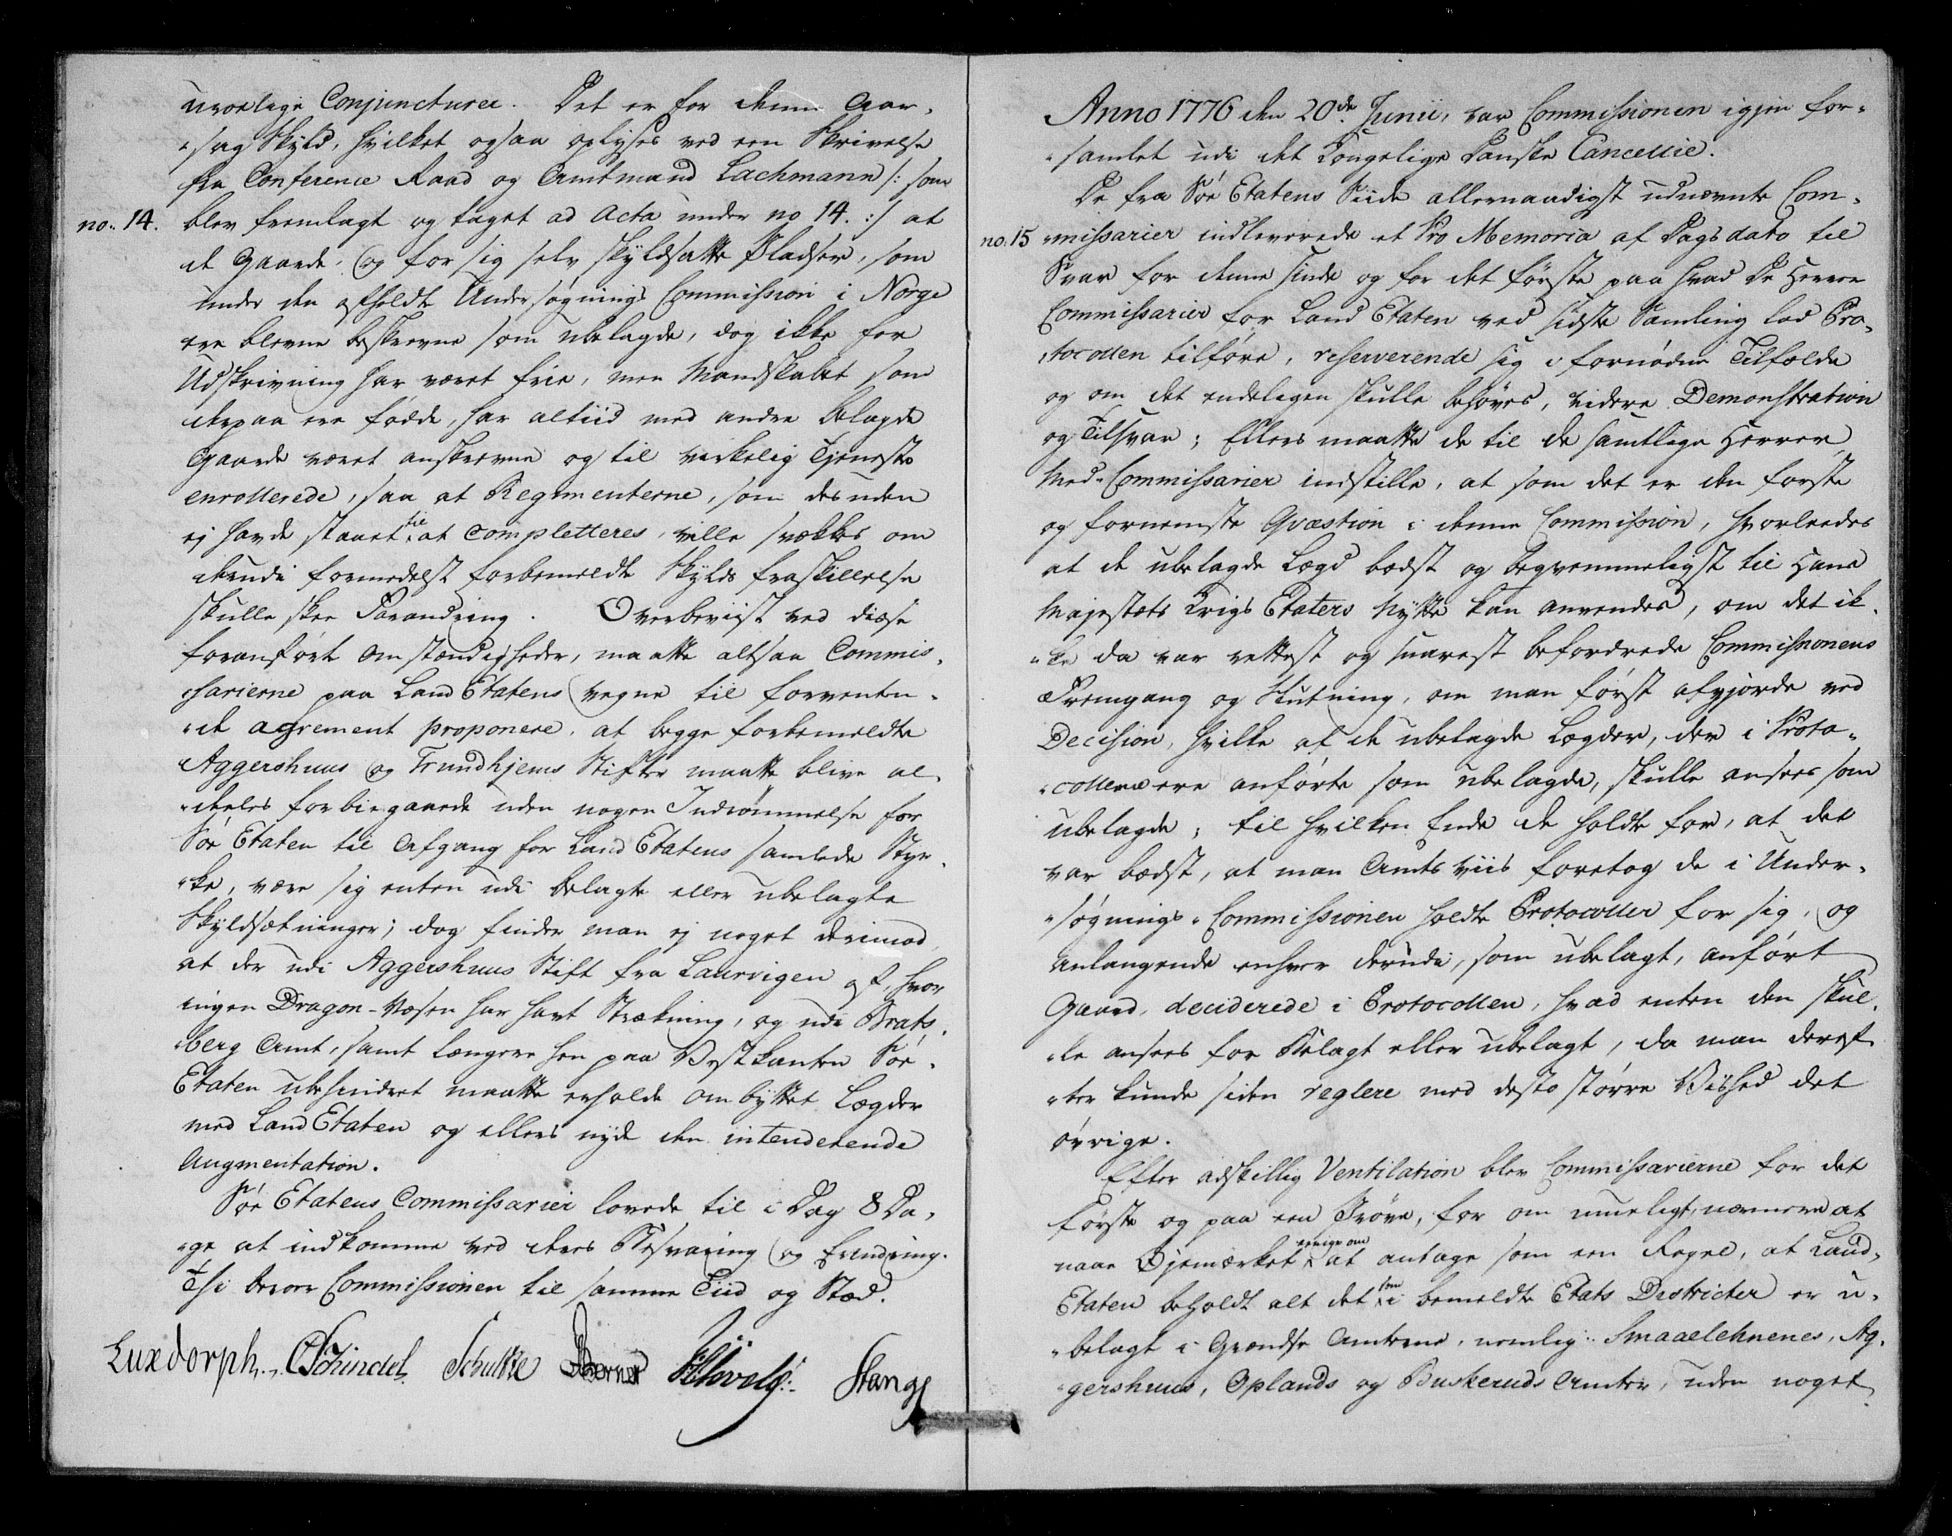 urolige Conjuncturer. Det er for denne Aar-
sag Skyld, hvilket ogsaa oplyses ved een Skrivelse
fra Conference Raad og Amtmand Lachmann /: som
no: 14. blev fremlagt og taget ad Acta under no 14. :/ at
de Gaarde og for sig selv skyldsatte Pladser, som
under den afholdte Undersøgnings Commission i Norge
ere blevne beskrevne som ubelagde, dog ikke for
Udskrivning har været frie, men Mandskabet som
derpaa ere fødde, har altiid med andre belagde
Gaarde været anskrevne og til virkelig Tjeneste
enrollerede, saa at Regimenterne, som desuden
ej havde staaet til at completteres, ville svækkes om
derudi formedelst forbemeldte Skylds fraskillelse
skulle skee Forandring. Overbeviist ved disse
foranførte Omstændigheder, maatte altsaa Commis-
sarierne paa Land Etatens vegne til forventen-
de agrement proponere, at begge forbemeldte
Aggershuus og Trundhjems Stifter maatte blive al-
deles forbiegaaede uden nogen Indrømmelse for
Søe Etaten til Afgang for Land Etatens samlede Styr-
ke, være sig enten udi belagte eller ubelagte
Skyldsætninger; dog finder man ej noget derimod
at der udi Aggershuus Stift fra Laurvigen af, hvor
ingen Dragon-Væsen har havt Strækning, og udi Brats-
berg Amt, samt længere hen paa Vestkanten Søe-
Etaten ubehindret maatte erholde ombyttet Lægder
med Land Etaten og ellers nyde den intenderende
Augmentation.
Søe Etatens Commissarier lovede til i Dag 8 Da-
ge at indkomme ved deres Besvaring og Erindring.
Thi beroer Commissionen til samme Tiid og Stæd.
Luxdorph. Schindel. Schultze Stange
Anno 1776 den 20de Junii, var Commissionen igjen for-
samlet udi det Kongelige Danske Cancellie.
De fra Søe Etatens Siide allernaadigst udnævnte Com-
no: 15 missarier indleverede et Pro Memoria af Dags dato til
Svar for denne sinde og for det første paa hvad De Herrer
Commissarier for Land Etaten ved sidste Samling lod Pro-
tocollen tilføre, reserverende sig i fornøden Tilfælde
og om det endeligen skulle behøves, videre Demonstration
og Tilsvar; Ellers maatte de til de samtlige Herrer
Med-Commissarier indstille, at som det er den første
og fornemste Qvæstion i denne Commission, hvorleedes
at de ubelagde Lægd bædst og beqvemmeligst til Hans
Majestæts Krigs Etaters Nytte kan anvendes, om det ik-
ke da var rettest og snarest befordrede Commissionens
Fremgang og Slutning, om man først afgjorde ved
Decision, hvilke af de ubelagde Lægder, der i Proto-
collerne ere anførte som ubelagde, skulle ansees som
ubelagde; til hvilken Ende de holdte for, at det
var bædst, at man Amts viis foretog de i Under-
søgnings-Commissionen holdte Protocoller for sig, og
anlangende enhver derudi, som ubelagt, anført
Gaard, deciderede i Protocollen, hvad enten den skul-
le ansees for Belagt eller ubelagt, da man deref-
ter kunde siden reglere med desto større Vished det
øvrige.
Efter adskillig Ventilation blev Commissarierne for det
første og paa een Prøve, for om mueligt, nærmere at
naae Øjemærket enige om at antage som een Regel, at Land-
Etaten beholdt alt det som i bemeldte Etats Districter er u-
belagt i Grændse Amterne, nemlig: Smaaelehnenes, Ag-
gershuus, Oplands og Buskeruds Amter, uden noget